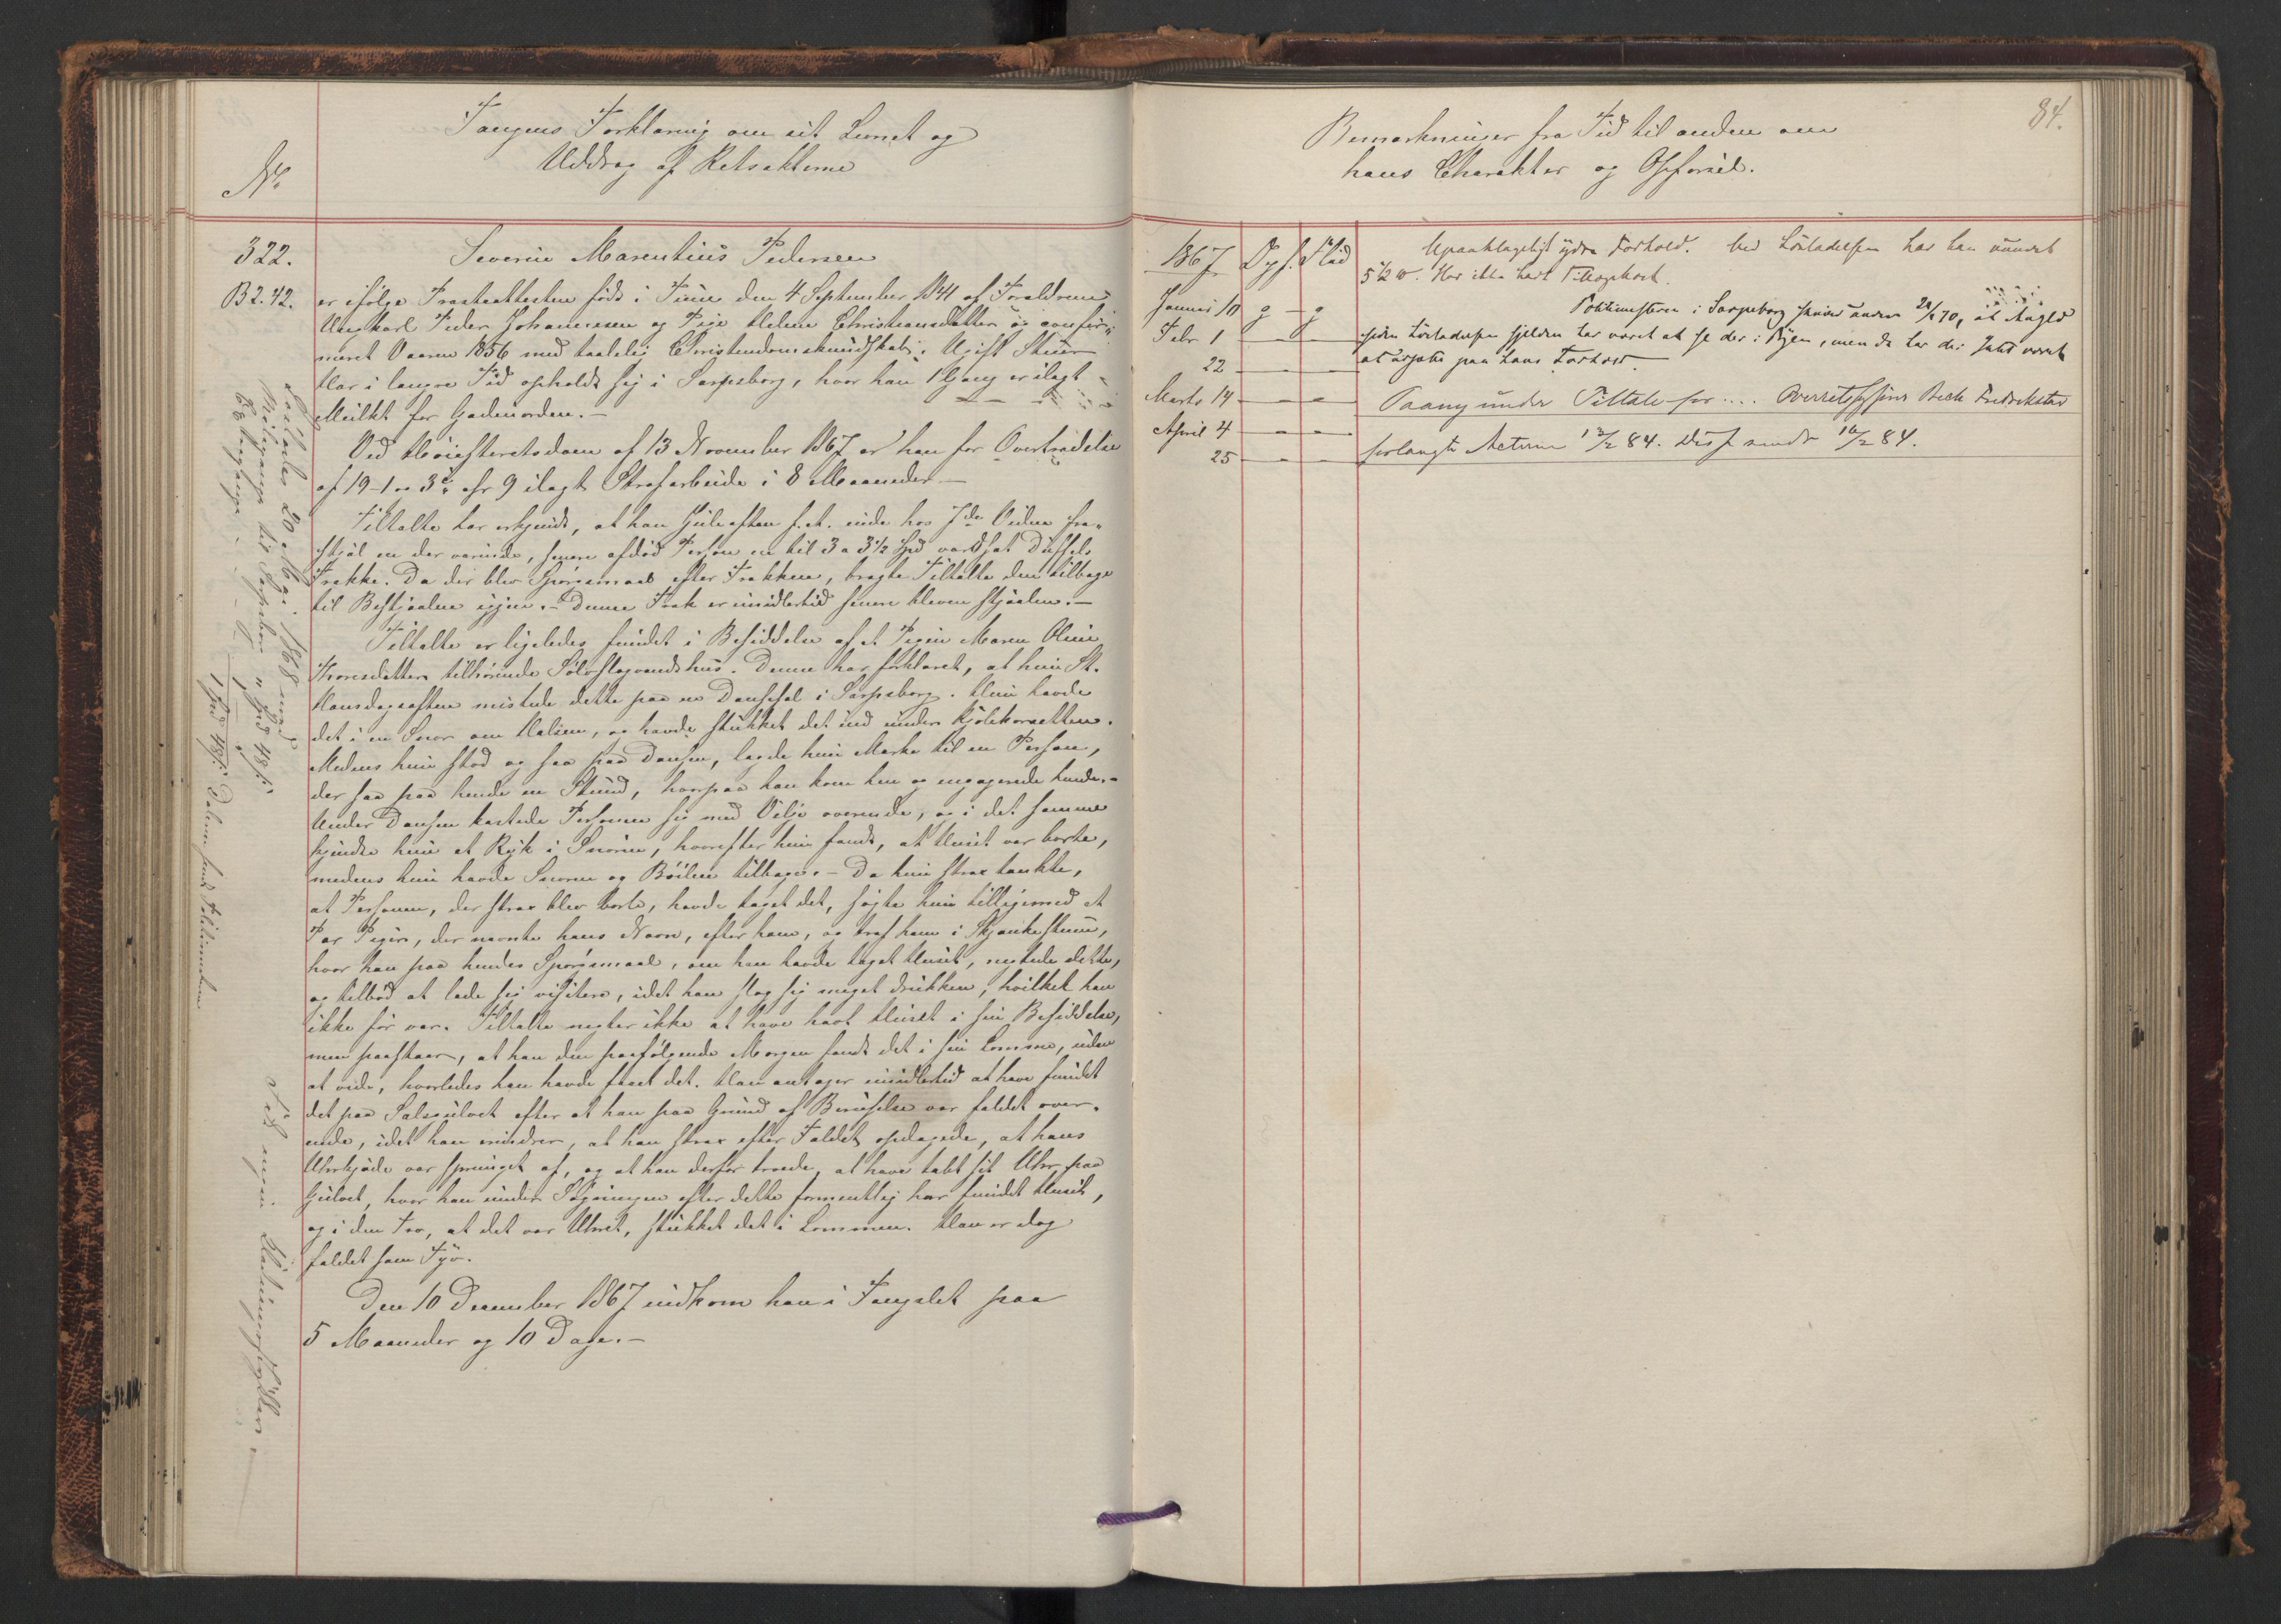 Fangens Forklaring om sit Levnet og
Uddrag af Retsakterne
No
322.
B 2. 42.
Severin Marentius Pedersen
er ifølge Præsteattesten født i Tune den 4 September 1841 af Forældrene
Ungkarl Peder Johannesen og Pige Helene Christiansdatter og confir-
meret Vaaren 1856 med taalelig Christendomskundskab. Ugift
Har i længre Tid opholdt sig i Sarpsborg, hvor han 1 Gang er ilagt
Mulkt for Gadeuorden.-
Ved Høiesteretsdom af 13 November 1867 er han for Overtrædelse
af 19-1 cfr 9 ilagt Strafarbeide i 8 Maaneder.-
Tiltalte har erkjendt, at han Juleaften f. A. inde hos
stjal en der værende, senere afdød Person en til 3 a 3½ Spd værdsat Duffels
Frakke. Da der blev Spørgsmaal efter Frakken, bragte Tiltalte den tilbage
til Bestjaalne igjen.- Denne Frak er imidlertid senere bleven stjaalen.-
Tiltalte er ligeledes fundet i Besiddelse af et Pigen Maren Oline
Thoresdatter tilhørende Sølvhovedvandshus. Denne har forklaret, at hun St.
Hansdagsaften mistede dette paa en Dansesal i Sarpsborg. Hun havde
det i en Snor om Halsen, og havde stukket det ind under Kjolekorsettet.
Medens hun stod og saa paa Dansen, lagde hun Mærke til en Person,
der saa paa hende en Stund, hvorpaa han kom hen og engagerede hende.-
Under Dansen kastede Personen sig med Vilje overende, og i det samme
kjendte hun et Ryk i Snoren, hvorefter hun fandt, at Huset var borte,
medens hun havde Snoren og Bøilen tilbage.- Da hun strax tænkte,
at Personen, der strax blev borte, havde taget det, søgte hun tilligemed et
Par Piger, der nævnte hans Navn, efter ham, og traf ham i Skjænkestuen,
hvor han paa hendes Spørgsmaal, om han havde taget Huset, negtede dette,
og tilbød at lade sig visitere, idet han slog sig meget drukken, hvilket han
ikke før var. Tiltalte negter ikke at have havt Huset i sin Besiddelse,
men paastaar, at han den paafølgende Morgen fandt det i sin Lomme, uden
at vide, hvorledes han havde faaet det. Han antager imidlertid at have fundet
det paa Salsgulvet efter at han paa Grund af Beruselse var faldet over-
ende, idet han erindrer, at han strax efter Faldet opdagede, at hans
Uhrkjæde var sprunget af, og at han derfor troede, at have tabt sit Uhr paa
Gulvet, hvor han under Søgningen efter dette formentlig har fundet Huset,
og i den Tro, at det var Uhret, stukket det i Lommen. Han er dog
faldet som Tyv.
Den 10 December 1867 indkom han i Fængslet paa
5 Maaneder og 10 Dage.-
Løsladt 20 Mai 1868 med
Reisepenge til Sarpsborg " Spd 48 s.
1 Spd 48 s.
Fik ingen Klædningsstykker
Bemærkninger fra Tid til anden om
hans Charakter og Opførsel.
84.
1867 Opf. Flid
Januar 10 g - g
Febr 1 - -
22 - -
Marts 14 - -
April 4 - -
25 - -
Upaaklageligt ydre Forhold. Ved Løsladelsen har han vundet
5½ . Har ikke havt Tillægskost.
Politimesteren i Sarpsborg skriver under 24/1 70, at
siden Løsladelsen sjelden har været at se der i Byen, men da har der Intet været
at udsætte paa hans Forhold.
Paany under Tiltale for .... Overretssagfører Bech Fredrikstad
forlangte Acterne 12/2 84. Disse sendt 16/2 84.